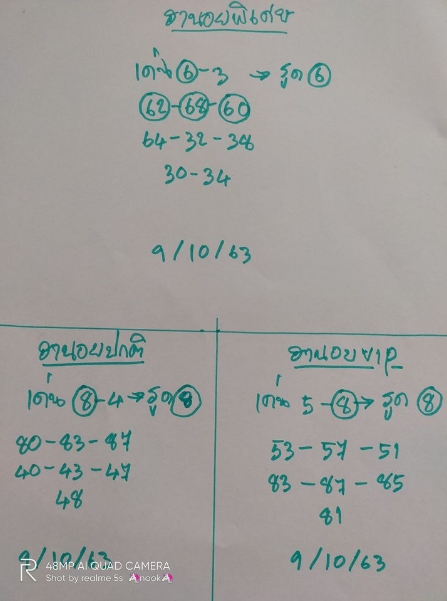 ฮานอยพิเศษ
เด่น 6-3 → รูด 6
62-68-60
64-32-38
30-34
9/10/63
ฮานอยปกติ
เด่น 8-4 → รูด 8
80-83-87
40-43-47
48
9/10/63
ฮานอย VIP
เด่น 5-8 → รูด 8
53-57-51
83-87-85
81
9/10/63
48MP AI QUAD CAMERA
Shot by realme 5s AnookA